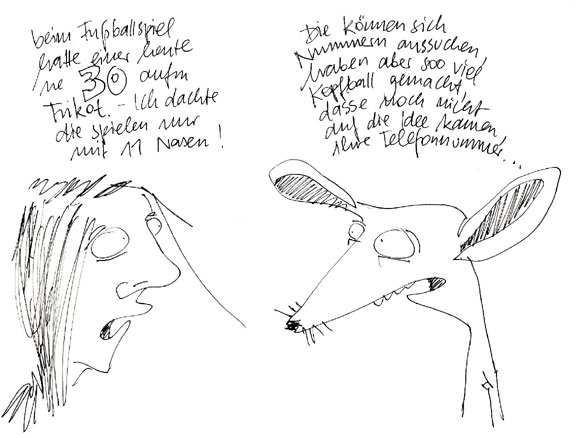 beim Fußballspiel
hatte einer heute
ne 30 aufm
Trikot. – Ich dachte
die spielen nur
mit 11 Nasen!
Die können sich
Nummern aussuchen,
haben aber soo viel
Kopfball gemacht,
dasse noch nicht
auf die Idee kamen
ihre Telefonnummer...